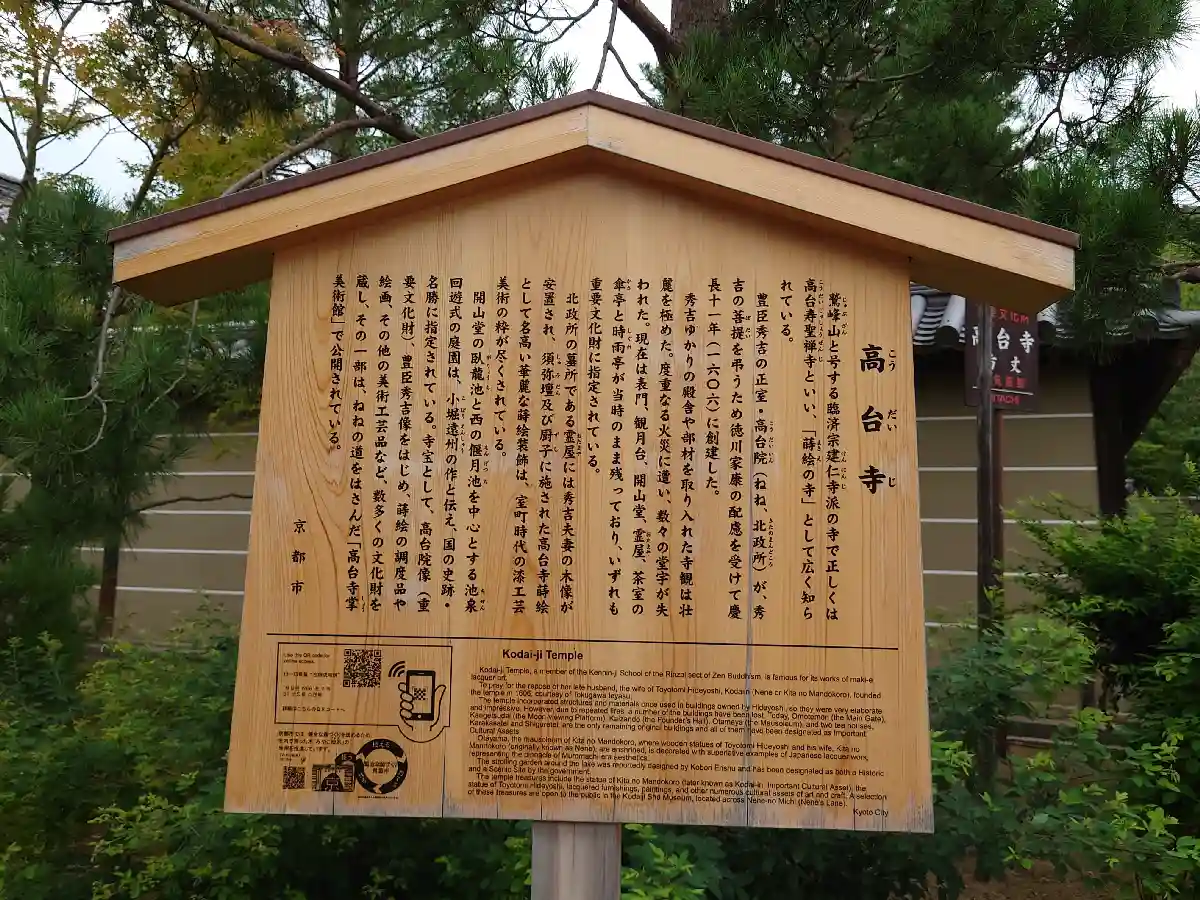 高台寺
こうだいじ
鷲峰山と号する臨済宗建仁寺派の寺で正しくは
高台寿聖禅寺といい、「蒔絵の寺」として広く知ら
れている。
豊臣秀吉の正室・高台院(ねね、北政所)が、秀
吉の菩提を弔うため徳川家康の配慮を受けて慶
長十一年(一六〇六)に創建した。
秀吉ゆかりの殿舎や部材を取り入れた寺観は壮
麗を極めた。度重なる火災に遭い、数々の堂宇が失
われた。現在は表門、観月台、開山堂、霊屋、茶室の
傘亭と時雨亭が当時のまま残っており、いずれも
重要文化財に指定されている。
北政所の墓所である霊屋には秀吉夫妻の木像が
安置され、須弥壇及び厨子に施された高台寺蒔絵
として名高い華麗な蒔絵装飾は、室町時代の漆工芸
美術の粋が尽くされている。
開山堂の臥龍池と西の偃月池を中心とする池泉
回遊式の庭園は、小堀遠州の作と伝え、国の史跡・
名勝に指定されている。寺宝として、高台院像(重
要文化財)、豊臣秀吉像をはじめ、蒔絵の調度品や
絵画、その他の美術工芸品など、数多くの文化財を
蔵し、その一部は、ねねの道をはさんだ「高台寺掌
美術館」で公開されている。
京都市
Kodai-ji Temple
Kodai-ji Temple, a member of the Kennin-ji School of the Rinzai sect of Zen Buddhism, is famous for its works of maki-e
lacquer art.
To pray for the repose of her late husband, the wife of Toyotomi Hideyoshi, Kodaiin (Nene or Kita no Mandokoro), founded
the temple in 1606, courtesy of Tokugawa Ieyasu.
The temple incorporated structures and materials once used in buildings owned by Hideyoshi, so they were very elaborate
and impressive. However, due to repeated fires, a number of the buildings have been lost. Today, Omotemon (the Main Gate),
Kangetsudai (the Moon Viewing Platform), Kaizando (the Founder's Hall), Otamaya (the Mausoleum), and two tea houses,
Karakasatei and Shiguretei, are the only remaining original buildings and all of them have been designated as Important
Cultural Assets
Otamaya, the mausoleum of Kita no Mandokoro, where wooden statues of Toyotomi Hideyoshi and his wife, Kita no
Mandokoro (originally known as Nene), are enshrined, is decorated with superlative examples of Japanese lacquer work,
representing the pinnacle of Muromachi-era aesthetics.
The strolling garden around the lake was reportedly designed by Kobori Enshu and has been designated as both a Historic
and a Scenic Site by the government.
The temple treasures include the statue of Kita no Mandokoro (later known as Kodai-in, Important Cultural Asset), the
statue of Toyotomi Hideyoshi, lacquered furnishings, paintings, and other numerous cultural assets of art and craft. A selection
of these treasures are open to the public in the Kodaiji Sho Museum, located across Nene-no Michi (Nene's Lane).
Kyoto City
高台寺
HITACHI